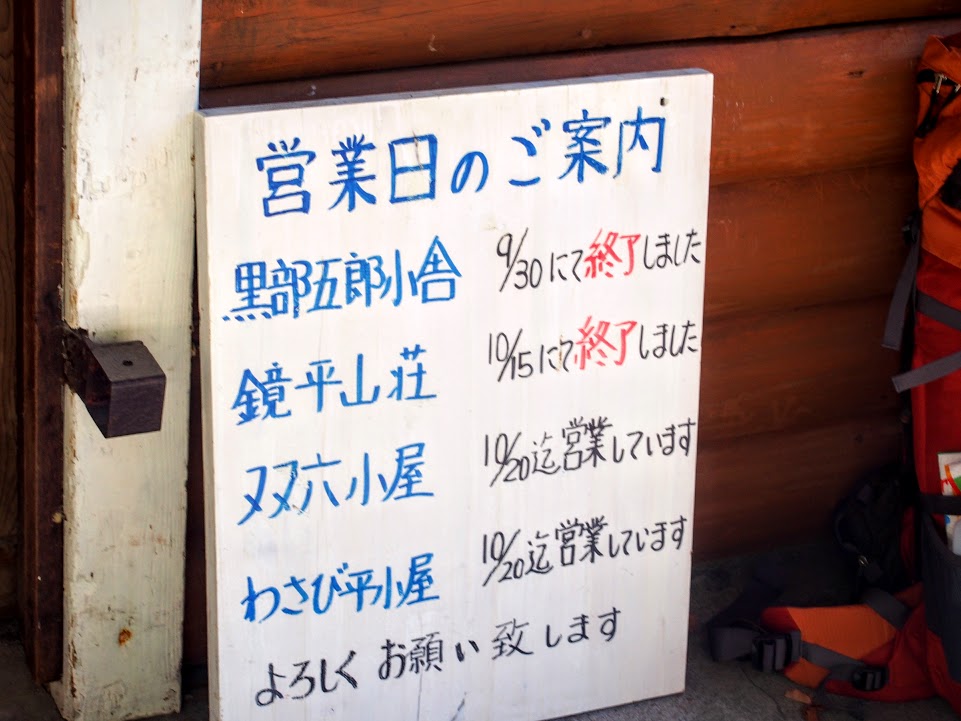 営業日のご案内
黒部五郎小舎 9/30にて終了しました
鏡平山荘 10/15にて終了しました
双六小屋 10/20迄営業しています
わさび平小屋 10/20迄営業しています
よろしくお願い致します